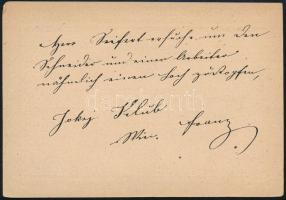 Herr Seifert ersuche um den
Schneider und einen Arbeiter
nähmlich einen Sack zustopfen,
Jokey Klub
Wien. Franz